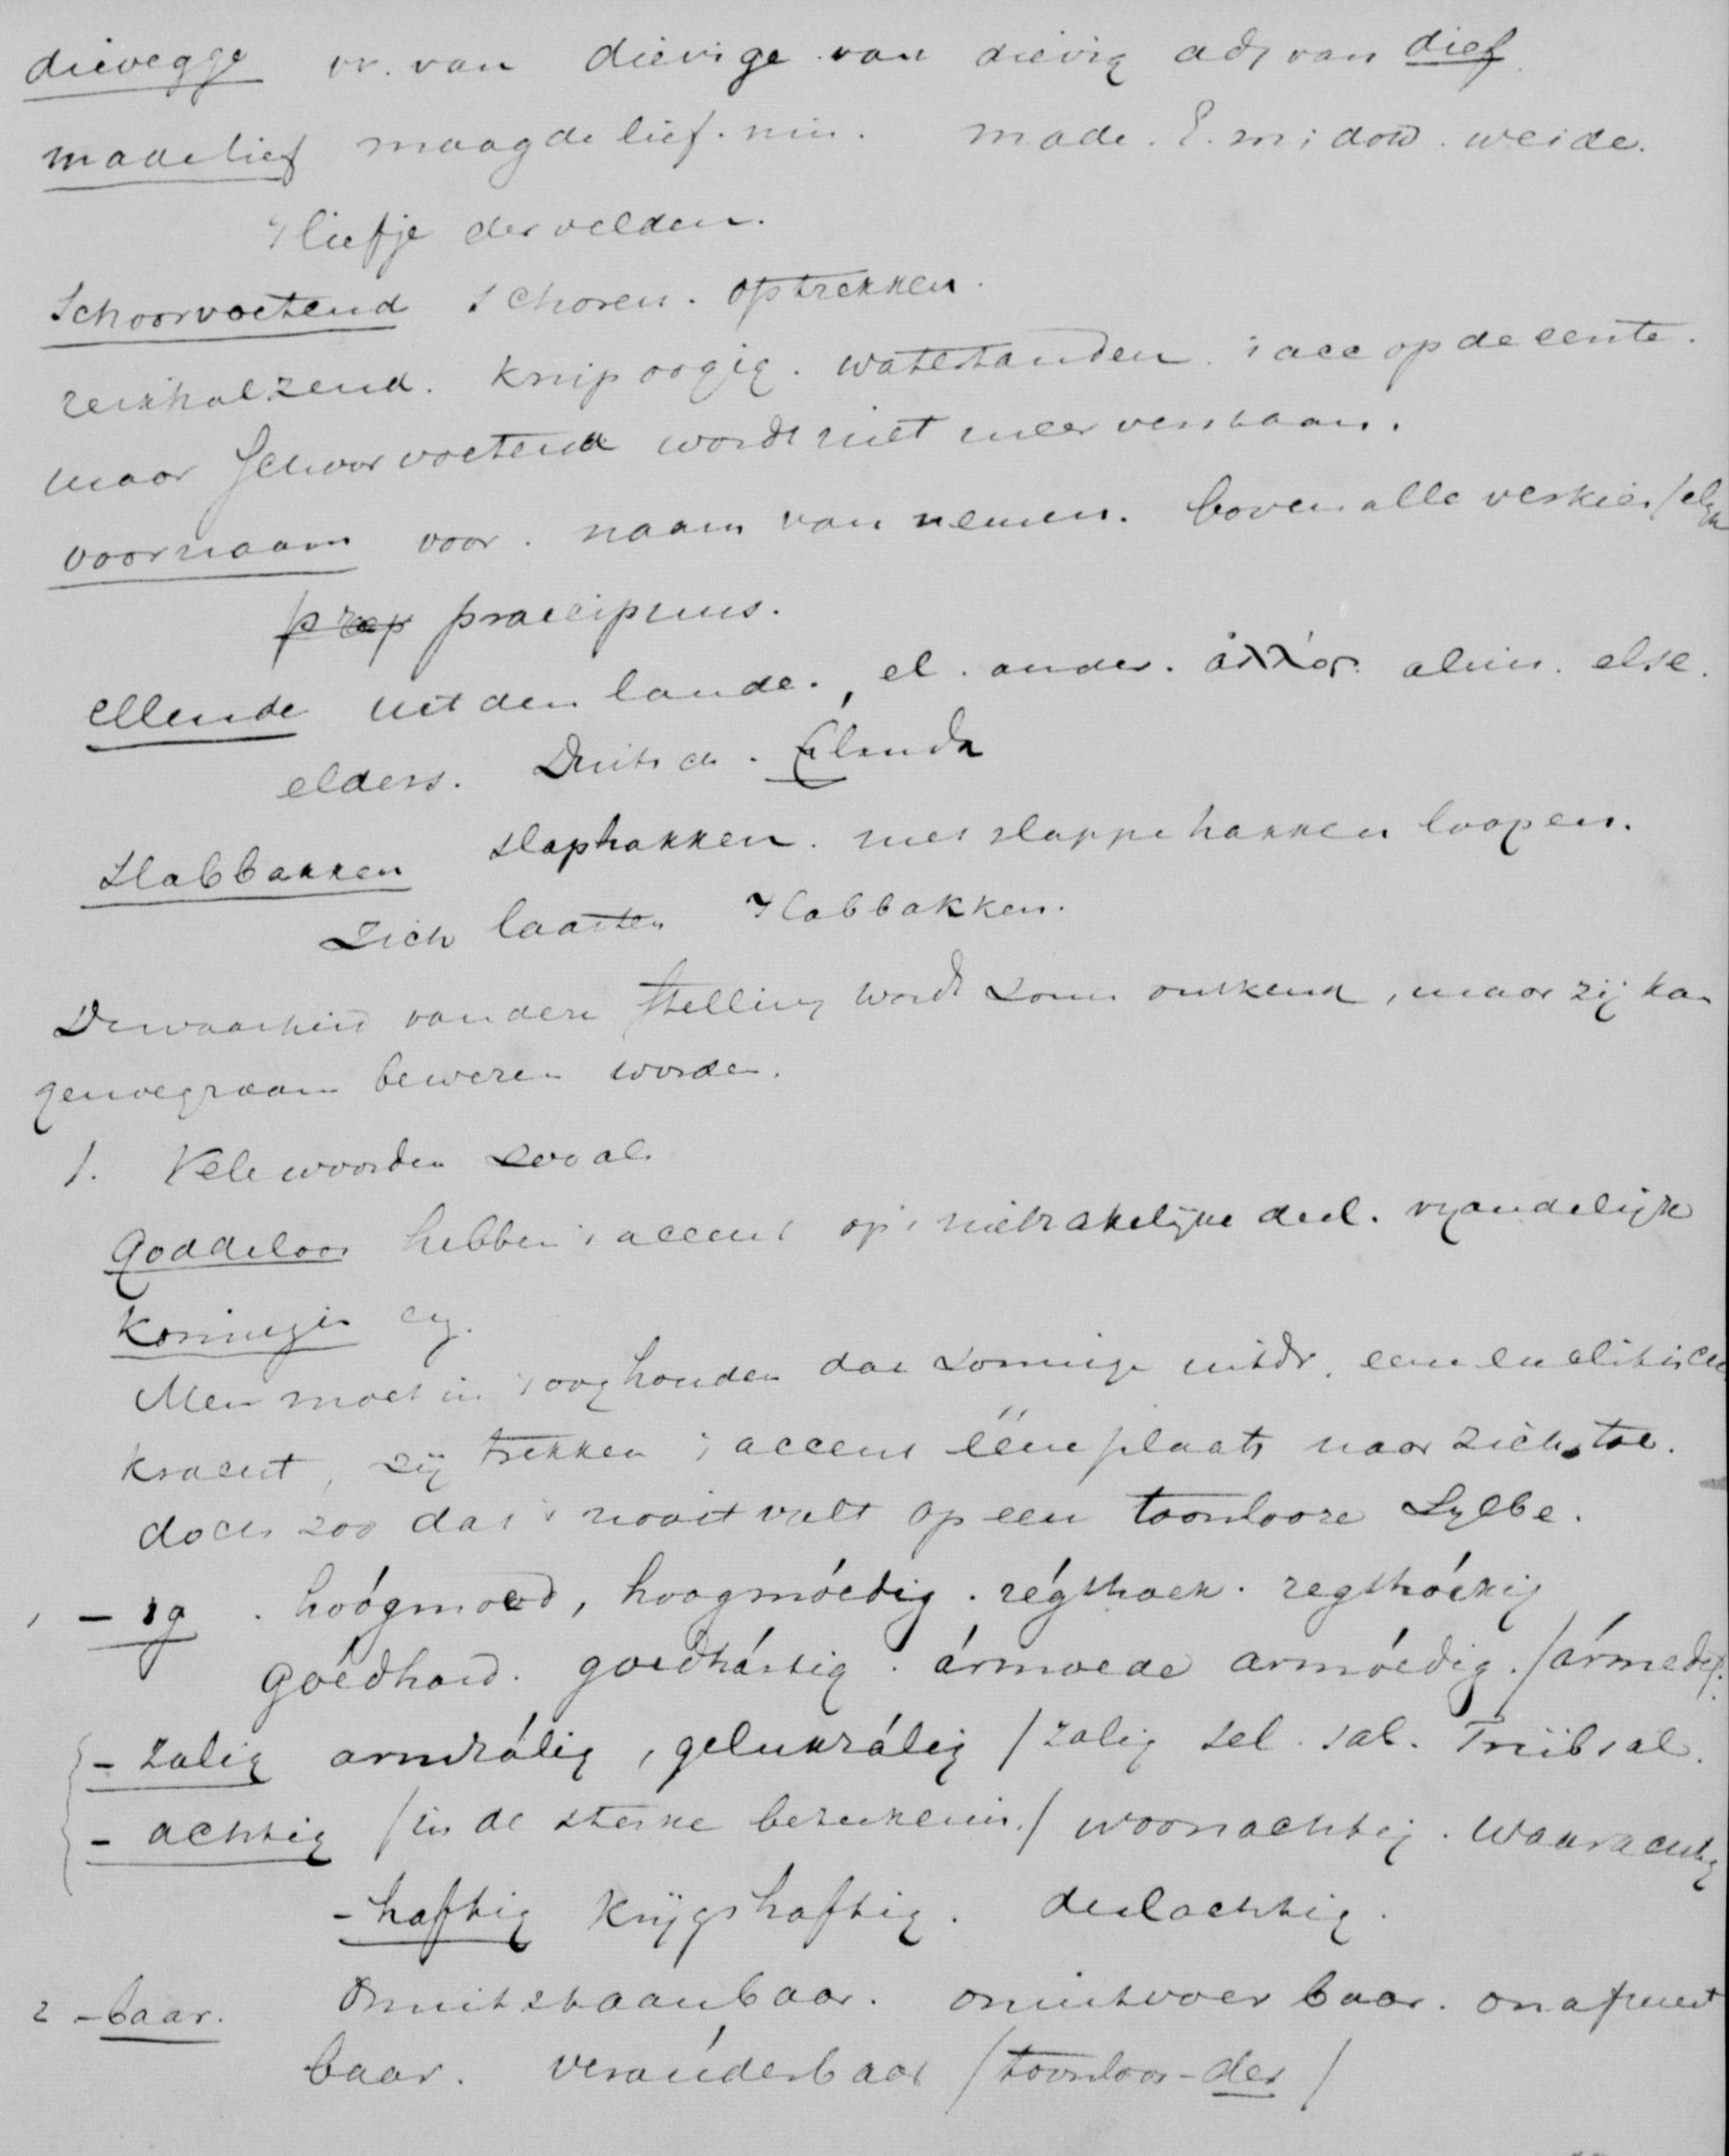 dievegge vr. van dievige van dievig adj van dief.
madelief maagdelief. min. made. E. midow. weide.
't liefje der velden.
Schoorvoetend schoren. optrekken.
reikhalzend. knipoogig. watertanden. 't acc op de eente.
maar schoorvoetend wordt niet meer verstaan.
voornaam voor. naam van nemen. boven alle verkies/elyk
prep praecipuus.
ellende uit den lande. , el. ander. ἄλλος. alius. else.
elders. Duitsch. Elende
slabbakken slaphakken. met slappe hakken loopen.
zich laten slabbakken.
De waarheid van deze stelling wordt soms ontkend, maar zij kan
genoegzaam beweren worden.
1. Vele woorden zooals
Goddeloos hebben 't accent op 't niet zakelijke deel. vyandelijk
Koningin enz.
Men moet in 't oog houden dat sommige uitdr. eene enclitische
kracht, zij trekken 't accent ééne plaats naar zich toe.
doch zoo dat 't nooit valt op een toonlooze Sylbe.
1 - ig. hoógmoed, hoogmóedig. régthoek. regthóekig
goédhard. goedhártig. ármoede armóedig. /ármedig/.
- zalig armzálig, gelukzálig / zalig sel. sal. Trübsal.
- achtig /in de sterke beteekenis/ woonachtig. waarachtig
- haftig krijgshaftig. deelachtig.
2 - baar. Onuitstaanbaar. onuitvoerbaar. onafwend
baar. veránderbaar /toonloos - der/